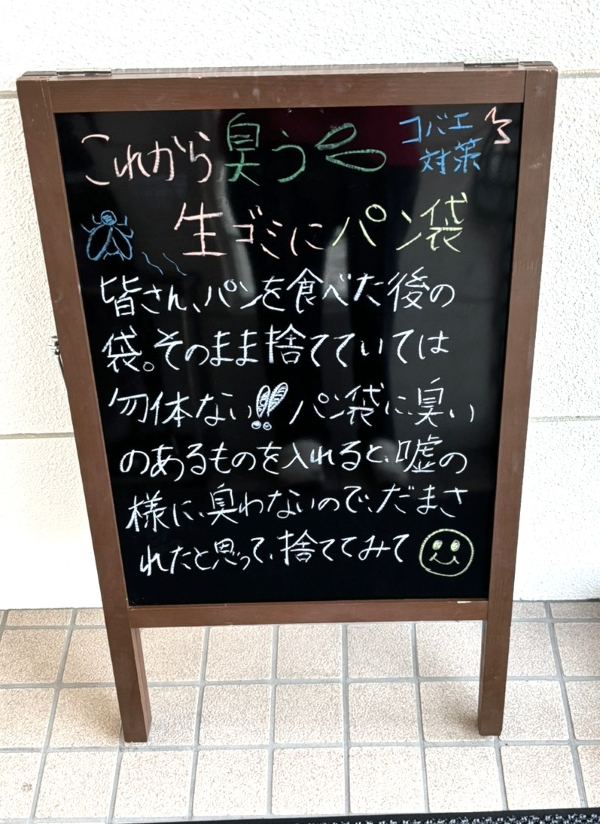 これから臭う
コバエ
対策
生ゴミにパン袋
皆さん、パンを食べた後の
袋。そのまま捨てていては
勿体ない!! パン袋に臭い
のあるものを入れると、嘘の
様に、臭わないので、だまさ
れたと思って、捨ててみて